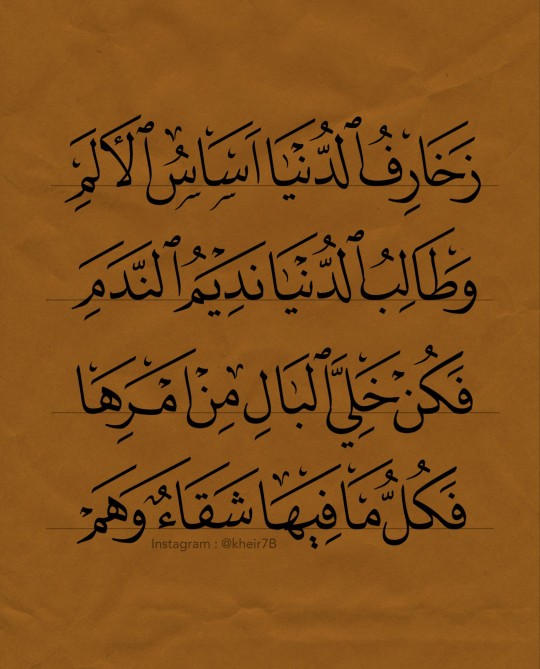 زَخَارِفُ ٱلدُّنْيَا اَسَاسُ ٱلْأَلَمِ
وَطَالِبُ ٱلدُّنْيَا نَدِيْمُ ٱلنَّدَمِ
فَكُنْ خَلِيَّ ٱلْبَالِ مِنْ اَمْرِهَا
فَكُلُّ مَا فِيهَا شَقَاءٌ وَهَمْ
Instagram : @kheir7B